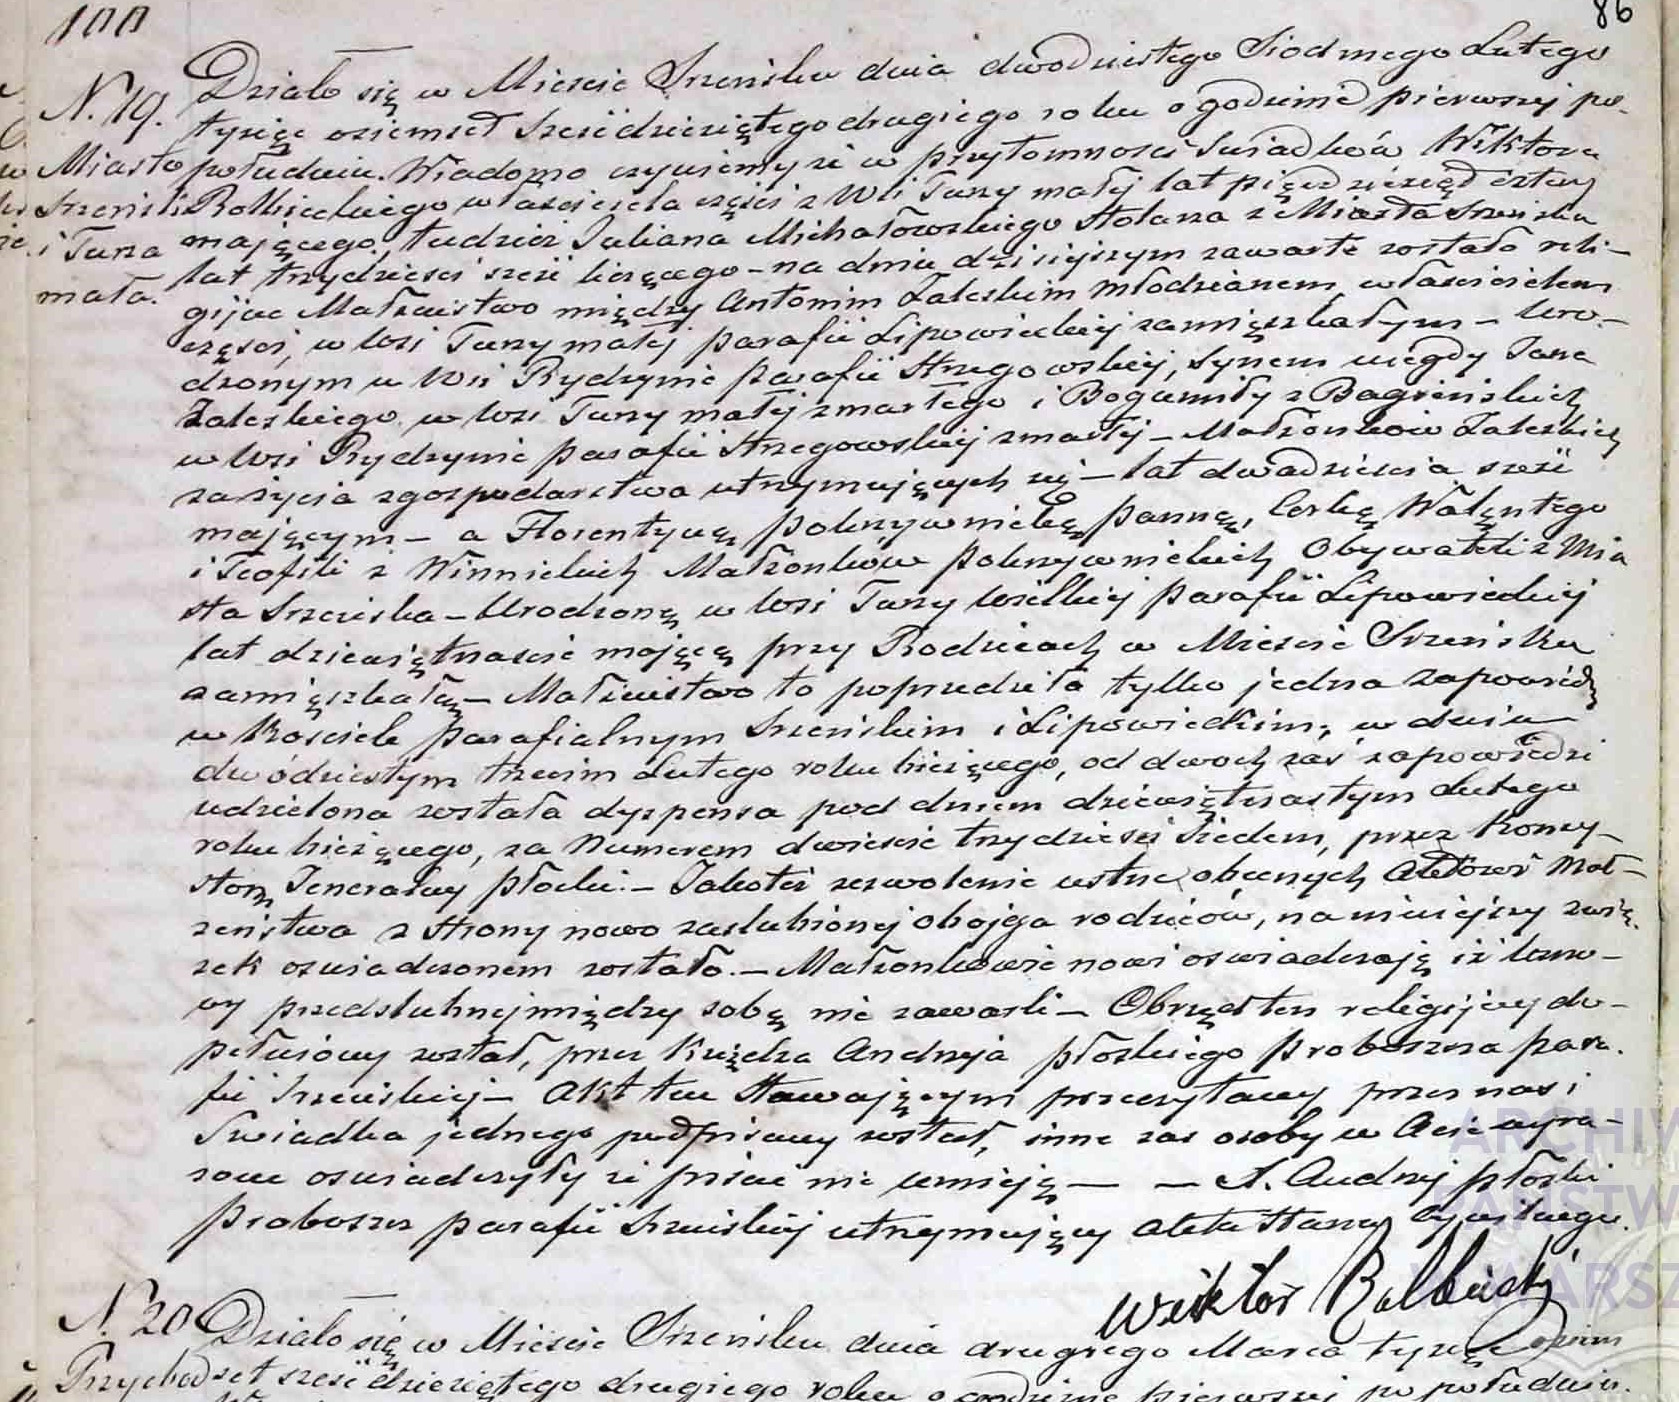 100
86
N. 19.
Miasto
Szreńsk
i Tuza
mała.
Działo się w Mieście Szreńsku dnia dwodziestego Siodmego Lutego
tysiąc osiemset sześćdziesiątego drugiego roku o godzinie pierwszej po-
południu. Wiadomo czyniemy że w przytomności Świadków Wiktora
właściciela części z Wsi Tuzy małej lat pięćdziesiąt cztery
mającego, tudzież Juliana Michałowskiego stolarza z Miasta Szreńska
lat trzydzieści sześć liczącego – na dniu dzisiejszym zawarte zostało reli-
gijne Małżeństwo między Antonim Zaleskim Młodzianem, właścicielem
części, w Wsi Tuzy małej parafii Lipowieckiej zamięszkałym – uro-
dzonym w Wsi Rydzynie parafii Strzegowskiej, Synem niegdy Jana
Zaleskiego w Wsi Tuzy małej zmarłego i Bogumiły z Bagieńskich
w Wsi Rydzynie parafii Strzegowskiej zmarłej – Małżonków Zaleskich
za życia z gospodarstwa utrzymujących się – lat dwadzieścia sześć
mającym – a Florentyną Pokrzywnicką panną, Corką Walentego
i Teofili z Winnickich Małżonków Pokrzywnickich Obywateli z Mia
sta Szreńska – Urodzoną w Wsi Tuzy Wielkiej parafii Lipowieckiej
lat dziewiętnaście mającą przy Rodzicach w Mieście Szreńsku
zamięszkałą – Małżeństwo to poprzedziła tylko jedna zapowiedź
w Kościele parafialnym Szreńskim i Lipowieckim, w dniu
dwódziestym trzecim Lutego roku bieżącego, od dwoch zaś zapowiedzi
udzielona została dyspensa pod dniem dziewiętnastym Lutego
roku bieżącego, za Numerem dwieście trzydzieści siedem, przez Konsy-
storz Jeneralny Płocki. – Jakoteż zezwolenie ustne obecnych Aktowi Mał-
żeństwa z strony nowo zaślubionej obojga rodziców, na niniejszy zwią-
zek oświadczonem zostało. – Małżonkowie nowi oświadczają iż umo-
wy przedślubnej między sobą nie zawarli – Obrzęd ten religijny do-
pełniony został, przez Księdza Andrzeja Płoskiego Proboszcza para-
fii Szreńskiej – Akt ten Stawającym przeczytany przez nas i
Świadka jednego podpisany został, inne zaś osoby w Akcie wyra-
żone oświadczyły że pisać nie umieją — — X. Andrzej Płoski
Proboszcz parafii Szreńskiej utrzymujący Akta Stanu Cywilnego.
Wiktor
N. 20
Działo się w Mieście Szreńsku dnia drugiego Marca tysiąc osiem
set sześćdziesiątego drugiego roku o godzinie pierwszej po południu.